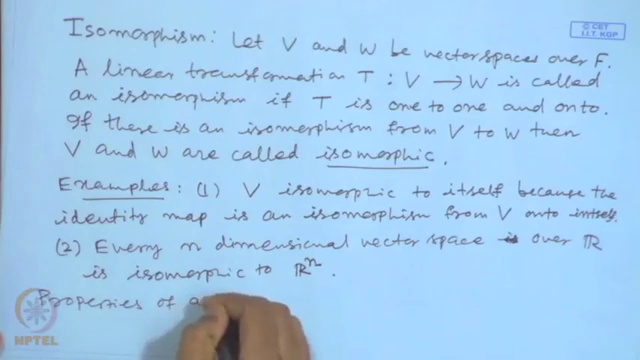 Isomorphism: Let V and W be vector spaces over F.
A linear transformation T : V → W is called
an isomorphism if T is one to one and onto.
If there is an isomorphism from V to W then
V and W are called isomorphic.
Examples: (1) V isomorphic to itself because the
identity map is an isomorphism from V onto intself.
(2) Every n dimensional vector space is over ℝ
is isomorphic to ℝⁿ.
Properties of a
© CET
I.I.T. KGP
NPTEL